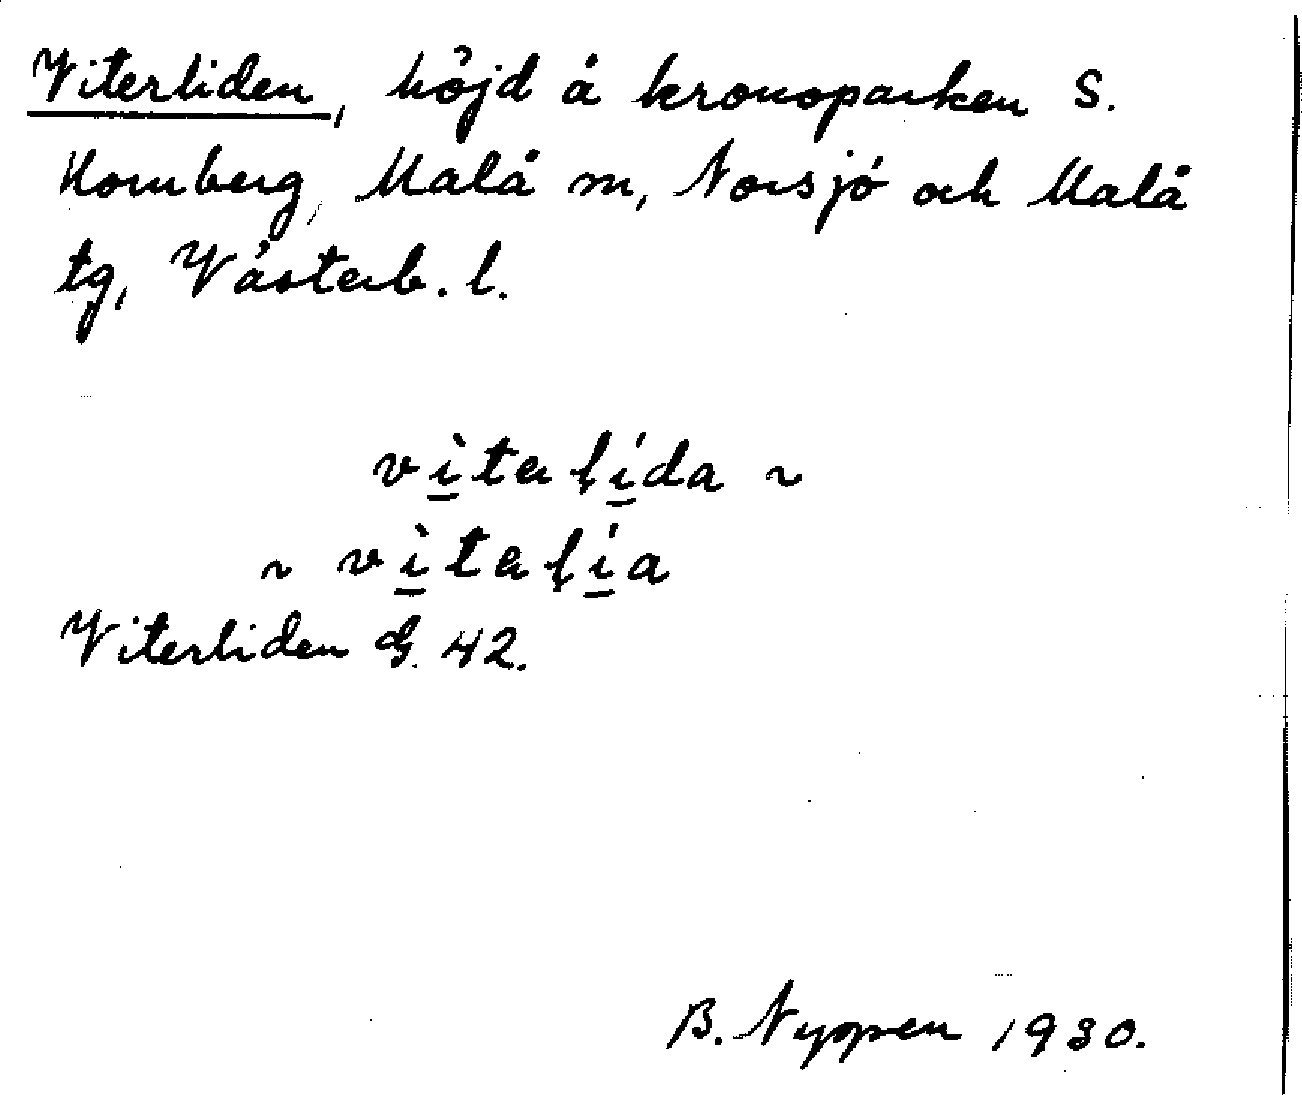 Viterliden, höjd å kronoparken S.
Hornberg, Malå m, Norsjö och Malå
tg, Västerb. l.
vìtalída ~
~ vìtalía
Viterliden G. 42.
B. Nyppen 1930.